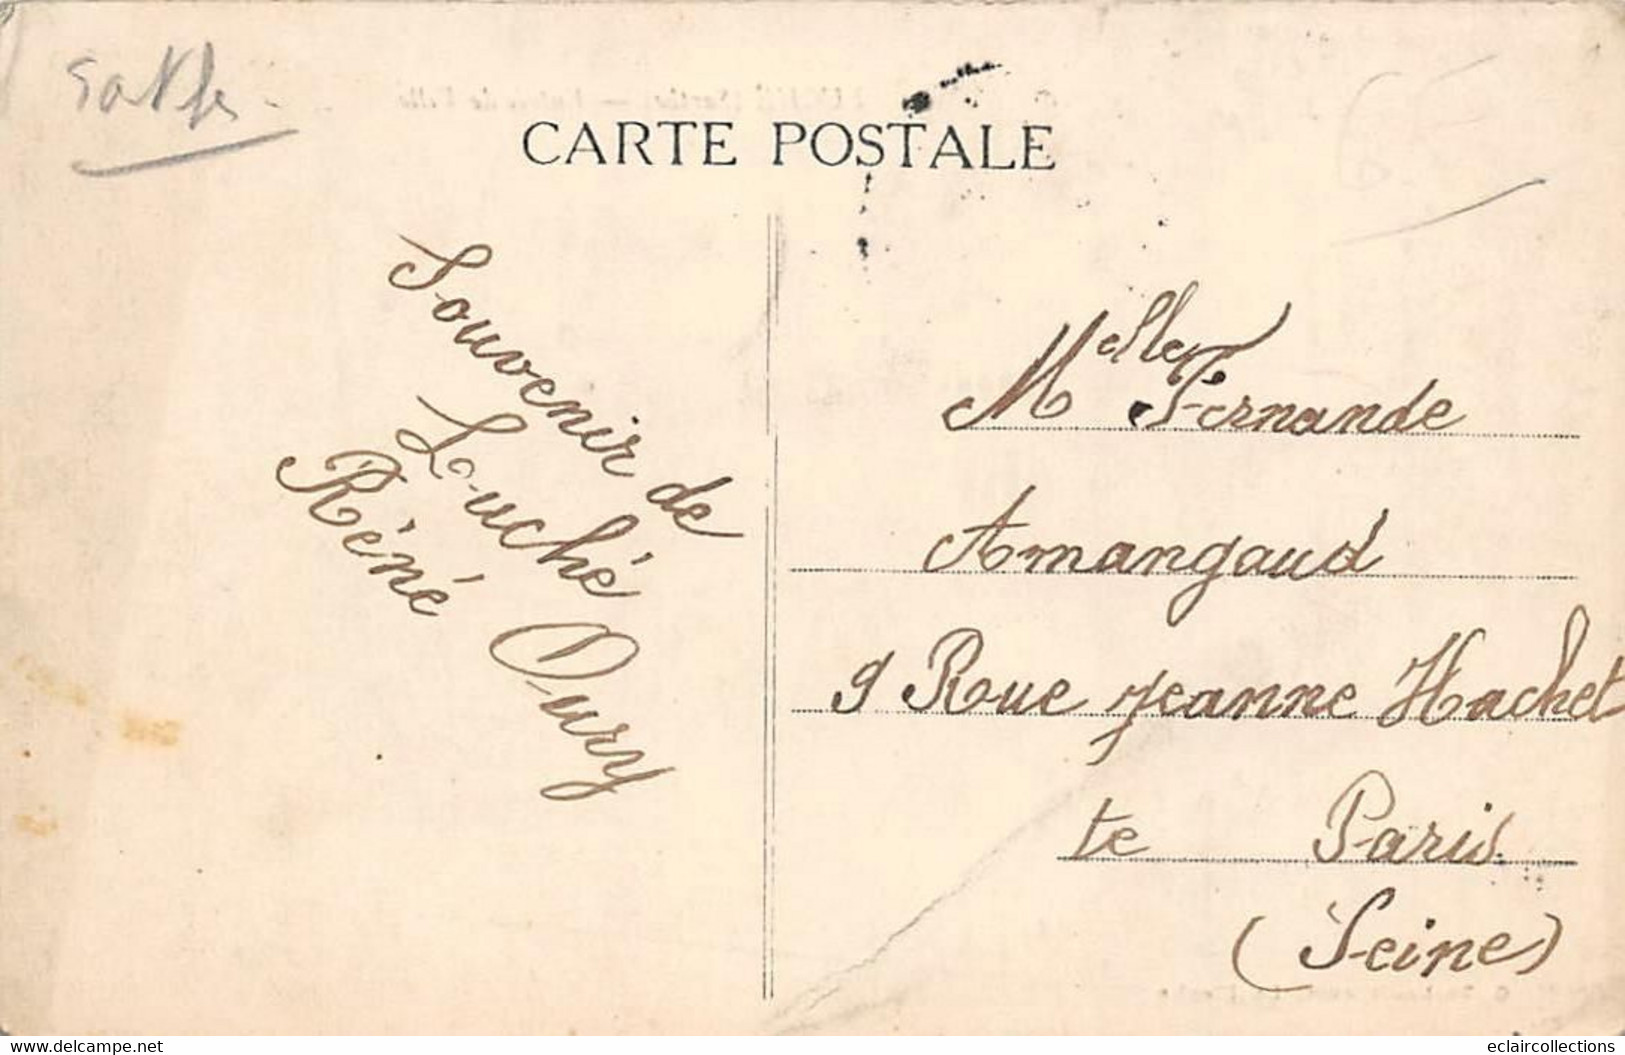 Sarthe
CARTE POSTALE
Souvenir de
Louché
Réné Oury
Melle Fernande
Amangaud
9 Rue Jeanne Hachet
te Paris
(Seine)
www.delcampe.net
eclaircollections